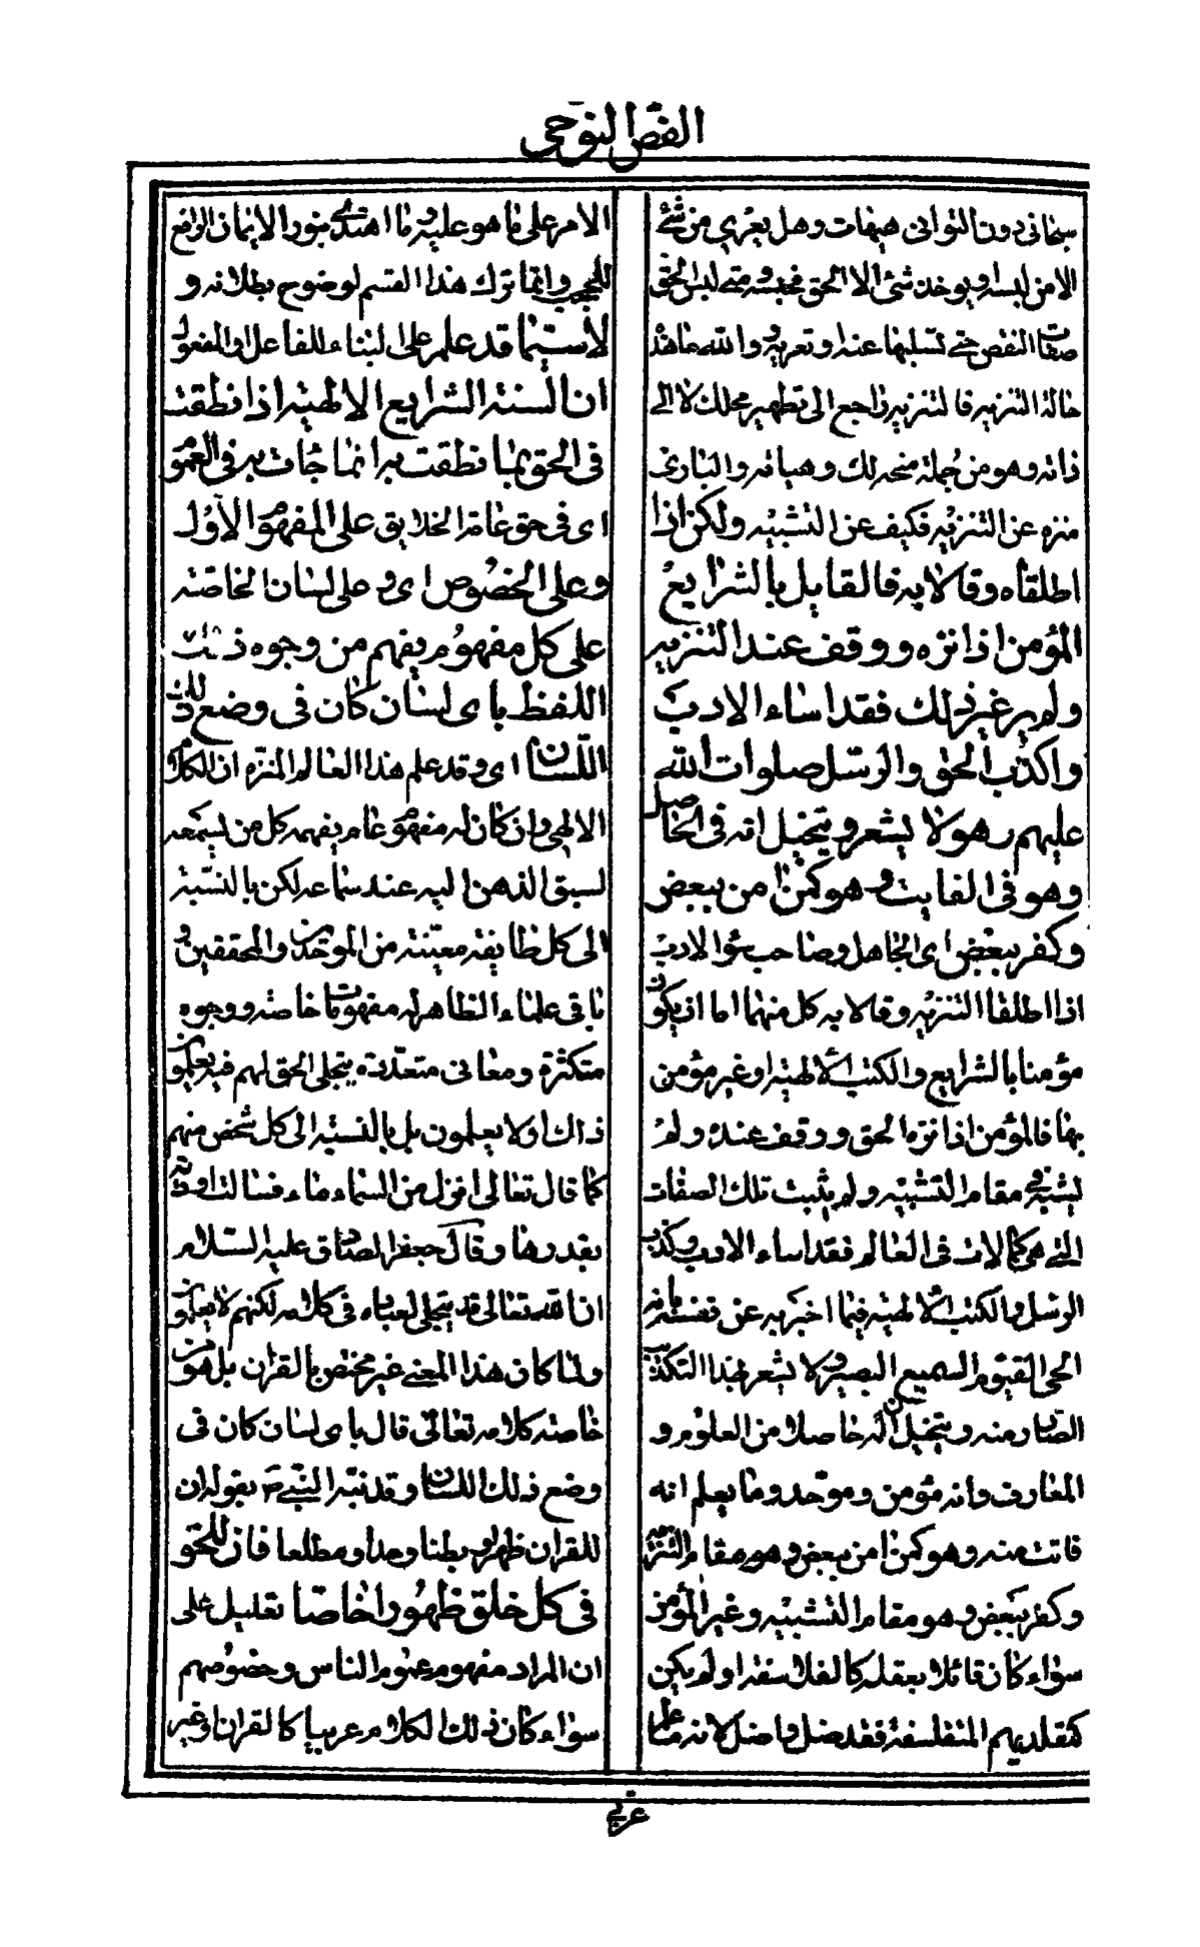 الفص النوحى
سبحانى دون التوانى هيهات وهل يعرى من شئ
الا من لبسه او يوخذ شئ الا الحق محبسه ومتى لبس الحق
صفات النقص حتى تسلبها عنه او تعريه والله ما هذه
حالة التنزيه فالتنزيه راجع الى تطهير محلك لا الى
ذاته وهو من جملة منحه لك وهباته والبارى
منزه عن التنزيه فكيف عن التشبيه ولكن اذا
اطلقاه وقالا به فالقايل بالشرايع
المؤمن اذا نزه ووقف عند التنزيه
ولم ير غير ذلك فقد اساء الادب
واكذب الحق والرسل صلوات الله
عليهم وهو لا يشعر ويتخيل انه فى الحاصل
وهو فى الفايت وهو كمن امن ببعض
وكفر ببعض اى الجاهل وصاحب سوء الادب
اذا اطلقا التنزيه وقالا به كل منهما اما ان يكون
مؤمنا بالشرايع والكتب الالهية او غير مؤمن
بها فالمؤمن اذا نزه الحق ووقف عنده ولم
يشبه فى مقام التشبيه ولم يثبت تلك الصفات
التى هى كمالات فى العالم فقد اساء الادب وكذب
الرسل والكتب الالهية فيما اخبر به عن نفسه بانه
الحى القيوم السميع البصير ولا يشعر بهذا التكذيب
الصادر منه ويتخيل ان له حاصلا من العلوم و
المعارف وانه مؤمن وموحد وما يعلم انه
فاتت منه وهو كمن امن ببعض وهو مقام التنزيه
وكفر ببعض وهو مقام التشبيه وغير المؤمن
سواء كان قائلا بعقله كالفلاسفة او لم يكن
كمقلديهم المتفلسفة فقد ضل واضل لانه ما علم
الامر على ما هو عليه وما اهتدى بنور الايمان الرافع
للحجب وانما ترك هذا القسم لوضوح بطلانه و
لا سيما قد علم على البناء للفاعل او المفعول
ان السنة الشرايع الالهية اذا نطقت
فى الحق بما نطقت به انما جاءت به فى العموم
اى فى حق عامة الخلايق على المفهوم الاول
وعلى الخصوص اى وعلى لسان الخاصة
على كل مفهوم يفهم من وجوه ذلك
اللفظ باى لسان كان فى وضع ذلك
اللسان اى وقد علم هذا العالم المنزه ان الكلام
الالهى وان كان له مفهوم عام يفهمه كل من يسمعه
لسبق الذهن اليه عند سماعه لكن بالنسبة
الى كل طايفة معينة من الموحدين والمحققين و
باقى علماء الظاهر له مفهومات خاصة ووجوه
متكثرة ومعانى متعددة يتجلى الحق لهم فيه يعلمون
ذلك او لا يعلمون بل بالنسبة الى كل شخص منهم
كما قال تعالى انزل من السماء ماء فسالت اودية
بقدرها وقال جعفر الصادق عليه السلام
ان الله تعالى قد يتجلى لعباده فى كلامه لكنهم لا يعلمون
ولما كان هذا المعنى غير مختص بالقران بل هو من
خاصة كلامه تعالى قال باى لسان كان فى
وضع ذلك اللسان وقد نبه النبى ص بقوله ان
للقران ظهرا وبطنا وحدا ومطلعا فان للحق
فى كل خلق ظهورا خاصا تعليل على
ان المراد مفهوم عموم الناس وخصوصهم
سواء كان ذلك الكلام عربيا كالقران او غير
عربى